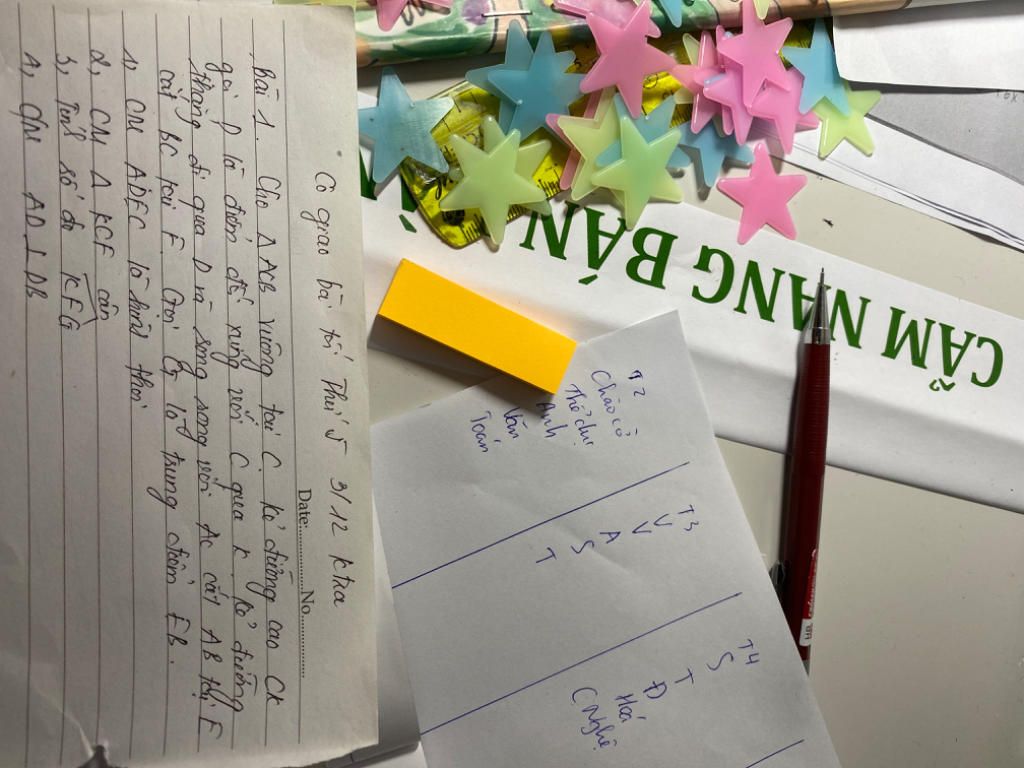 Date:............No................
Cô giao bài tới Thứ 5 3/12 ktra
Bài 1. Cho Δ ACB vuông tại C. kẻ đường cao CK
gọi D là điểm đối xứng với C qua K. kẻ đường
thẳng đi qua D và song song với AC cắt AB tại E
cắt BC tại F. Gọi G là trung điểm EB.
1, CM ADEC là hình thoi
2, CM Δ KCF cân
3, Tính số đo KFG
4, CM AD ⊥ DB
CẨM NANG BÁN
T2
Chào cờ
Thể dục
Anh
Văn
Toán
T3
V
V
A
S
T
T4
S
T
Đ
Hoá
C Nghệ